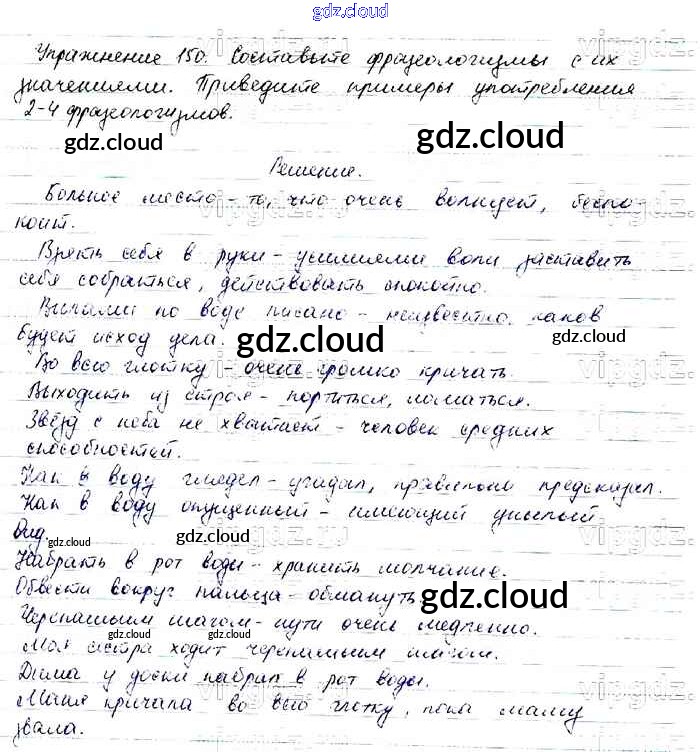 gdz.cloud
Упражнение 150. Составьте фразеологизмы с их
значениями. Приведите примеры употребления
2-4 фразеологизмов.
gdz.cloud
gdz.cloud
Решение.
Больное место - то, что очень волнует, беспо-
коит.
Взять себя в руки - усилиями воли заставить
себя собраться, действовать спокойно.
Вилами по воде писано - неизвестно, каков
будет исход дела.
gdz.cloud
gdz.cloud
Во всю глотку - очень громко кричать.
Выходить из строя - портиться, ломаться.
Звёзд с неба не хватает - человек средних
способностей.
gdz.cloud
Как в воду глядел - угадал, правильно предсказал.
Как в воду опущенный - имеющий унылый
вид.
gdz.cloud
gdz.cloud
Набрать в рот воды - хранить молчание.
Обвести вокруг пальца - обмануть.
gdz.cloud
Черепашьим шагом - идти очень медленно.
gdz.cloud
gdz.cloud
Моя сестра ходит черепашьим шагом.
Дима у доски набрал в рот воды.
Маня кричала во всю глотку, пока маму
звала.
vipgdz.